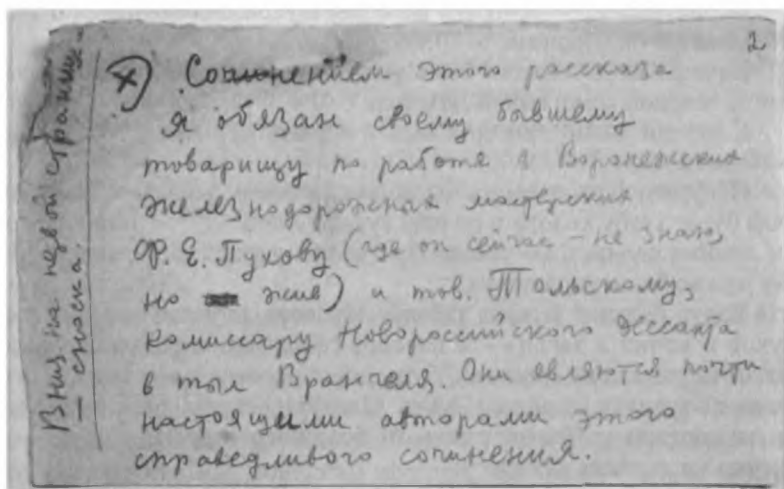 2
x) Сочинением этого рассказа
я обязан своему бывшему
товарищу по работе в Воронежских
железнодорожных мастерских
Ф. Е. Пухову (где он сейчас – не знаю,
но жив) и тов. Тольскому,
комиссару Новороссийского десанта
в тыл Врангеля. Они являются почти
настоящими авторами этого
справедливого сочинения.
Вниз на первой странице
– сноска.